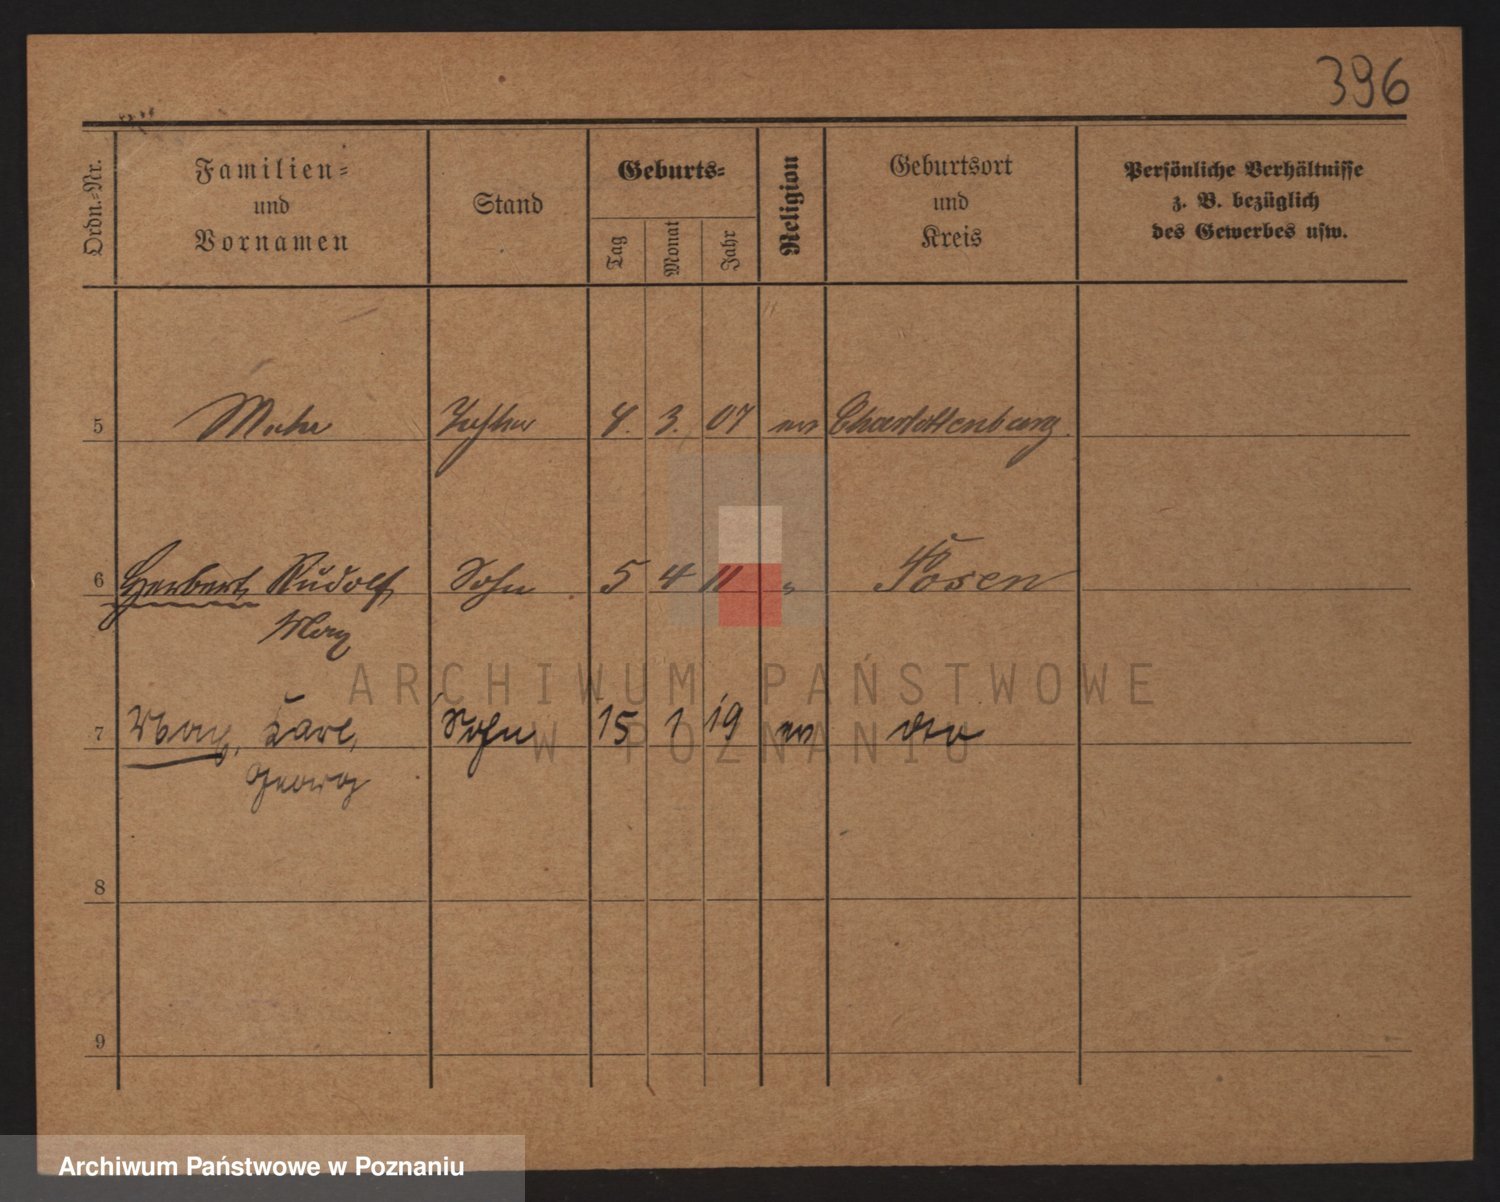 396
Ordn.-Nr.
Familien-
und
Vornamen
Stand
Geburts-
Tag
Monat
Jahr
Religion
Geburtsort
und
Kreis
Persönliche Verhältnisse
z. B. bezüglich
des Gewerbes usw.
5 Tochter 3. 07 ev Charlottenburg
6 Herbert Rudolf Sohn 5 4 11 " Posen
Max
7 Karl, Sohn 15 1 19 ev dto
Georg
8
9
ARCHIWUM PAŃSTWOWE
W POZNANIU
Archiwum Państwowe w Poznaniu